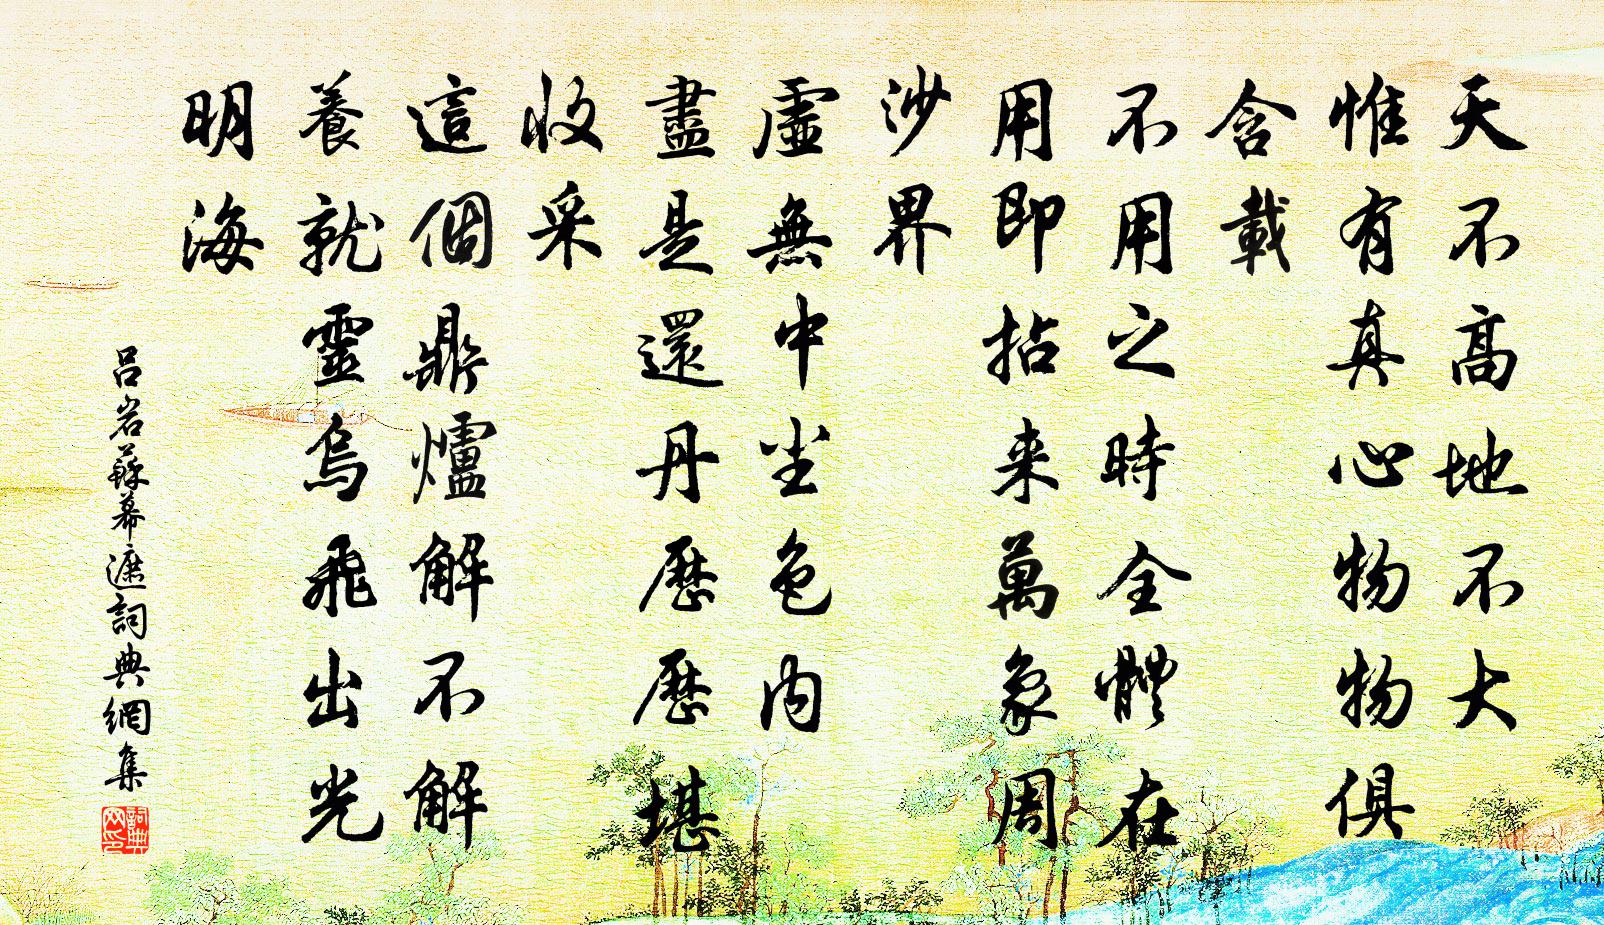 天不高地不大
惟有真心物物俱
含載
不用之時全體在
用即拈来萬象周
沙界
虛無中塵色内
盡是還丹歷歷堪
收采
這個鼎爐解不解
養就靈烏飛出光
明海
吕岩蘇幕遮詞典網集
詞典